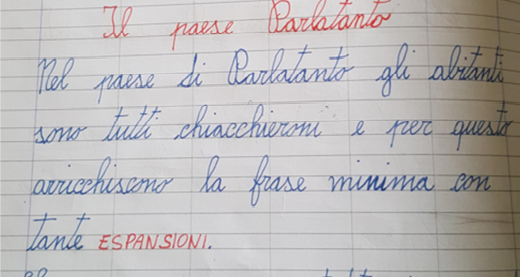 Il paese Parlatanto
Nel paese di Parlatanto gli abitanti
sono tutti chiacchieroni e per questo
arricchiscono la frase minima con
tante ESPANSIONI.